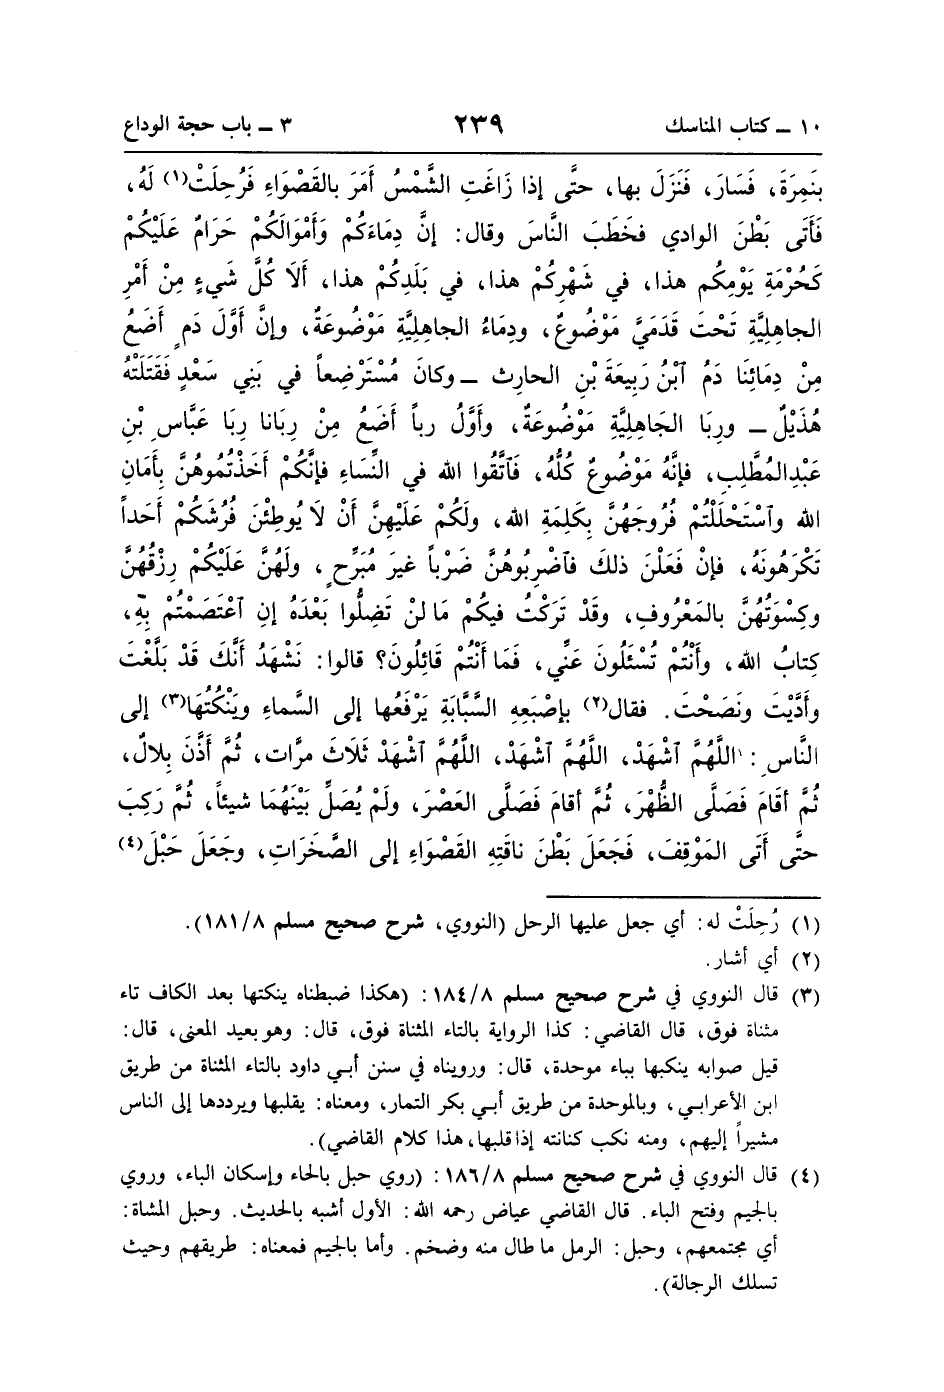 ١٠ ــ كتاب المناسك ٢٣٩ ٣ ــ باب حجة الوداع
بِنَمِرَةَ، فَسَارَ، فَنَزَلَ بها، حتَّى إذا زَاغَتِ الشَّمْسُ أَمَرَ بالقَصْوَاءِ فَرُحِلَتْ(١) لَهُ،
فَأَتَى بَطْنَ الوادي فخَطَبَ النَّاسَ وقال: إنَّ دِمَاءَكُمْ وَأَمْوَالَكُمْ حَرَامٌ عَلَيْكُمْ
كَحُرْمَةِ يَوْمِكُم هذا، في شَهْرِكُمْ هذا، في بَلَدِكُمْ هذا، ألَا كُلَّ شَيءٍ مِنْ أَمْرِ
الجاهِلِيَّةِ تَحْتَ قَدَمَيَّ مَوْضُوعٌ، ودِمَاءُ الجاهِلِيَّةِ مَوْضُوعَةٌ، وإنَّ أَوَّلَ دَمٍ أَضَعُ
مِنْ دِمَائِنَا دَمُ ٱبْنُ رَبِيعَةَ بْنِ الحارِث ــ وكانَ مُسْتَرْضِعاً في بَنِي سَعْدٍ فَقَتَلَتْهُ
هُذَيْلٌ ــ ورِبَا الجَاهِلِيَّةِ مَوْضُوعَةٌ، وأَوَّلُ رباً أَضَعُ مِنْ رِبَانا رِبَا عَبَّاسِ بْنِ
عَبْدِالمُطَّلِبِ، فإنَّهُ مَوْضُوعٌ كُلُّهُ، فَٱتَّقُوا الله في النِّسَاءِ فإنَّكُمْ أَخَذْتُمُوهُنَّ بِأَمَانِ
الله وٱسْتَحْلَلْتُمْ فُرُوجَهُنَّ بِكَلِمَةِ الله، ولَكُمْ عَلَيْهِنَّ أَنْ لَا يُوطِئْنَ فُرُشَكُمْ أَحَداً
تَكْرَهُونَهُ، فإنْ فَعَلْنَ ذلكَ فٱضْرِبُوهُنَّ ضَرْباً غيرَ مُبَرِّحٍ، ولَهُنَّ عَلَيْكُمْ رِزْقُهُنَّ
وكِسْوَتُهُنَّ بالمَعْرُوفِ، وقَدْ تَرَكْتُ فيكُمْ مَا لَنْ تَضِلُّوا بَعْدَهُ إنِ ٱعْتَصَمْتُمْ بِهِ،
كِتابُ الله، وأَنْتُمْ تُسْئَلُونَ عَنِّي، فَمَا أَنْتُمْ قَائِلُونَ؟ قالوا: نَشْهَدُ أَنَّكَ قَدْ بَلَّغْتَ
وأَدَّيْتَ ونَصَحْتَ. فقال(٢) بإصْبَعِهِ السَّبَّابَةِ يَرْفَعُها إلى السَّماءِ ويَنْكُتُهَا(٣) إلى
النَّاسِ: اللَّهُمَّ ٱشْهَدْ، اللَّهُمَّ ٱشْهَدْ، اللَّهُمَّ ٱشْهَدْ ثَلَاثَ مرَّات، ثُمَّ أَذَّنَ بِلالٌ،
ثُمَّ أقامَ فَصَلَّى الظُّهْرَ، ثُمَّ أقامَ فَصَلَّى العَصْرَ، ولَمْ يُصَلِّ بَيْنَهُمَا شيئاً، ثُمَّ رَكِبَ
حتَّى أَتَى المَوْقِفَ، فَجَعَلَ بَطْنَ ناقَتِهِ القَصْوَاءِ إلى الصَّخَرَاتِ، وجَعَلَ حَبْلَ(٤)
(١) رُحِلَتْ له: أي جعل عليها الرحل (النووي، شرح صحيح مسلم ٨/١٨١).
(٢) أي أشار.
(٣) قال النووي في شرح صحيح مسلم ٨/١٨٤: (هكذا ضبطناه ينكتها بعد الكاف تاء
مثناة فوق، قال القاضي: كذا الرواية بالتاء المثناة فوق، قال: وهو بعيد المعنى، قال:
قيل صوابه ينكبها بباء موحدة، قال: ورويناه في سنن أبي داود بالتاء المثناة من طريق
ابن الأعرابي، وبالموحدة من طريق أبي بكر التمار، ومعناه: يقلبها ويرددها إلى الناس
مشيراً إليهم، ومنه نكب كنانته إذا قلبها، هذا كلام القاضي).
(٤) قال النووي في شرح صحيح مسلم ٨/١٨٦: (روي حبل بالحاء وإسكان الباء، وروي
بالجيم وفتح الباء. قال القاضي عياض رحمه الله: الأول أشبه بالحديث. وحبل المشاة:
أي مجتمعهم، وحبل: الرمل ما طال منه وضخم. وأما بالجيم فمعناه: طريقهم وحيث
تسلك الرجالة).